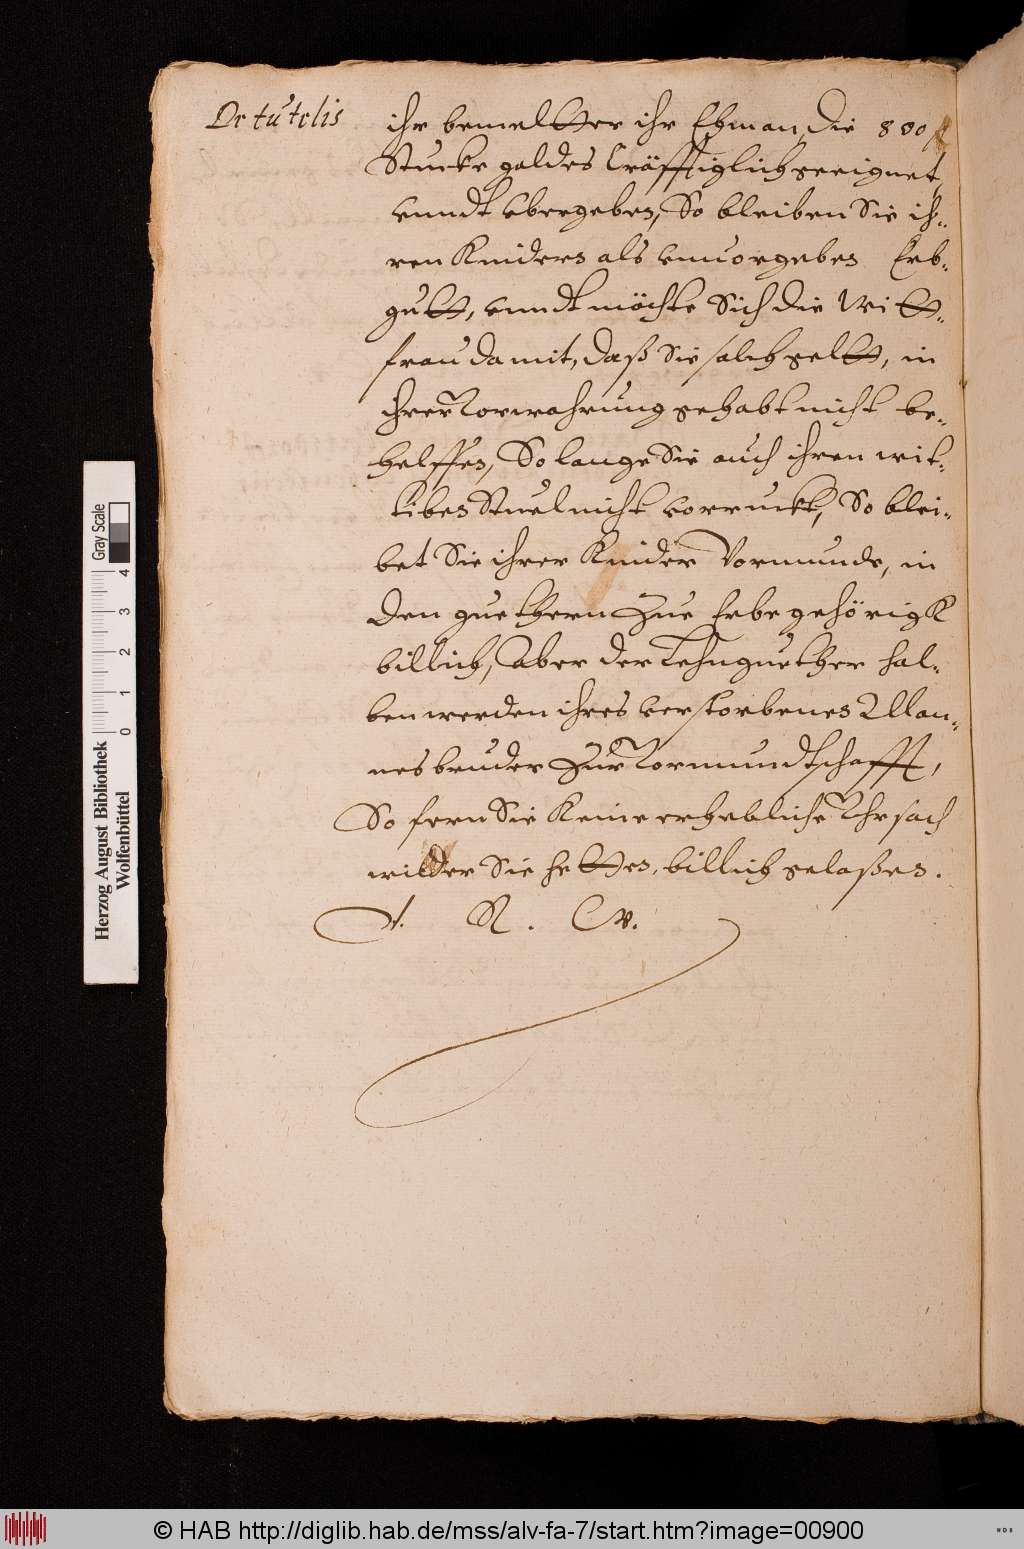 De tutelis
ihr bemeltter ihr Ehman, die 800 fl
Stucke goldes Cräfftiglich geeignet,
vnndt vbergeben, So bleiben Sie ih=
ren Kindern als vnuorgeben Erb=
gutt, vnndt möchte Sich die Witt=
frau damit, daß Sie solch geltt, in
ihrer Vorwahrung gehabt nicht be=
helffen, So lange Sie auch ihren wit=
tiben Stuel nicht vorruckt, So blei=
bet Sie ihrer Kinder Vormunde, in
den guethern Zue Erbe gehörigk
billich, Aber der Lehnguether hal=
ben werden ihres verstorbenen Man=
nes bruder Zur Vormundtschafft,
So fern Sie Keine erhebliche Vhrsach
wilder Sie hetten, billich gelaßen.
V. R. W.
Herzog August Bibliothek
Wolfenbüttel
0 1 2 3 4
Gray Scale
© HAB http://diglib.hab.de/mss/alv-fa-7/start.htm?image=00900